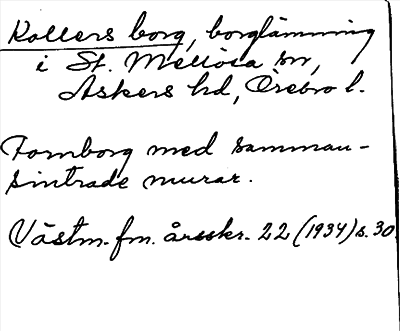 Kollers borg, borglämning
i St. Mellösa sn,
Askers hd, Örebro l.
Fornborg med samman-
sintrade murar.
Västm. fm. årsskr. 22 (1934) s. 30.